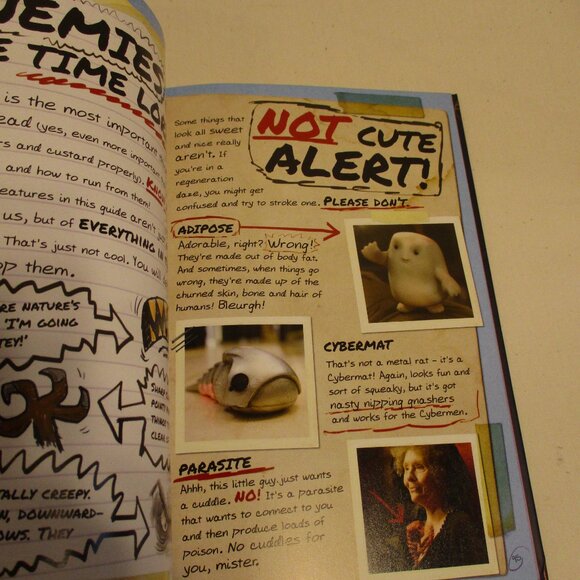 ENEMIES
TIME LO
is the most important
ead (yes, even more important
rs and custard properly).
and how to run from them!
eatures in this guide aren't
us, but of EVERYTHING IN
That's just not cool. You will
op them.
RE NATURE'S
'I'M GOING
TEY!'
TALLY CREEPY.
N, DOWNWARD-
OWS. THEY
NOT CUTE
ALERT!
Some things that
look all sweet
and nice really
aren't. If
you're in a
regeneration
daze, you might get
confused and try to stroke one. PLEASE DON'T.
ADIPOSE
Adorable, right? Wrong!
They're made out of body fat.
And sometimes, when things go
wrong, they're made up of the
churned skin, bone and hair of
humans! Bleurgh!
CYBERMAT
That's not a metal rat – it's a
Cybermat! Again, looks fun and
sort of squeaky, but it's got
nasty nipping gnashers
and works for the Cybermen.
PARASITE
Ahhh, this little guy just wants
a cuddle. NO! It's a parasite
that wants to connect to you
and then produce loads of
poison. No cuddles for
you, mister.